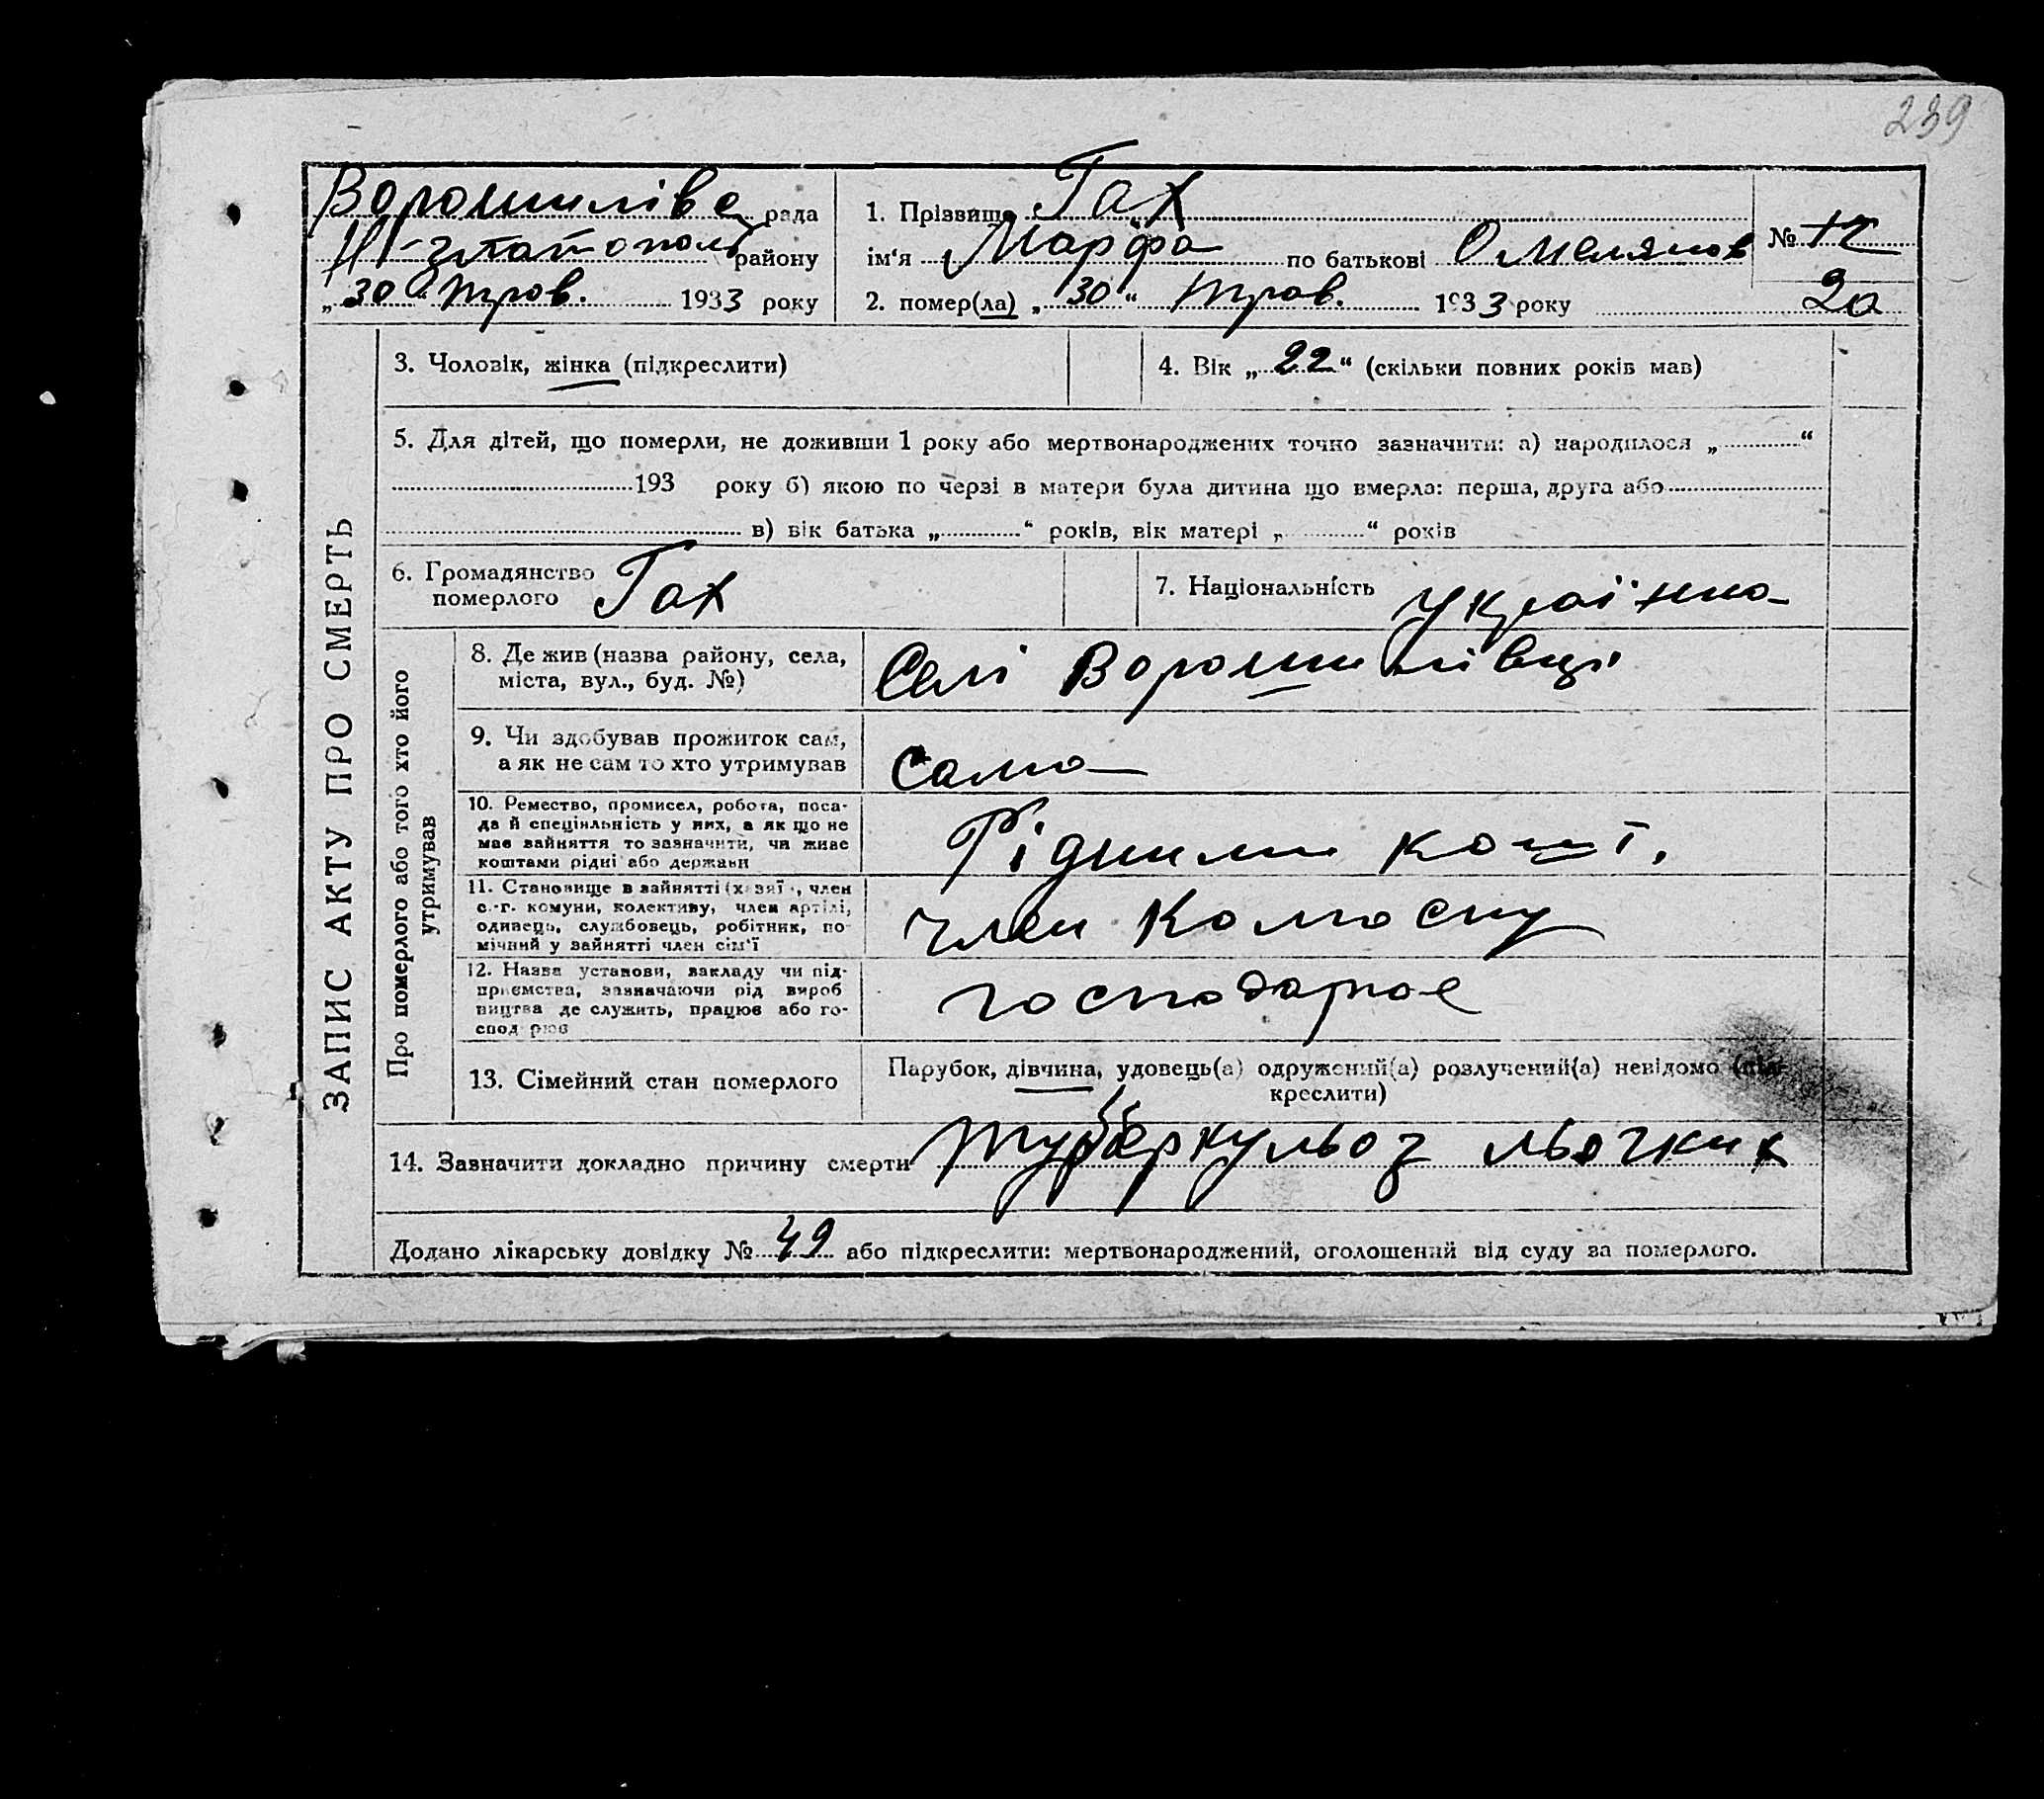 239
Ворошилівс рада
Н-златополь району
„ 30 “ трав. 1933 року
1. Прізвище Гах
ім‘я Марфа по батькові Омелянов
№ 12
2. помер(ла) „ 30 “ трав. 1933 року
20
ЗАПИС АКТУ ПРО СМЕРТЬ
3. Чоловік, жінка (підкреслити)
4. Вік „ 22 “ (скільки повних років мав)
5. Для дітей, що померли, не доживши 1 року або мертвонароджених точно зазначити: а) народилося „ “
193 року б) якою по черзі в матери була дитина що вмерла: перша, друга або
в) вік батька „ “ років, вік матері „ “ років
6. Громадянство
померлого Гах
7. Національність Українка
Про померлого або того хто його
утримував
8. Де жив (назва району, села,
міста, вул., буд. №)
Селі Ворошилівці
9. Чи здобував прожиток сам,
а як не сам то хто утримував
сама
10. Ремество, промисел, робота, поса-
да й спеціяльність у них, а як що не
має зайняття то зазначити, чи живе
коштами рідні або держави
Рідними кошт.
11. Становище в зайнятті (хазяї, член
с.-г. комуни, колективу, член артілі,
одинець, службовець, робітник, по-
мічний у зайнятті член сім‘ї
член Комосну
12. Назва установи, закладу чи під-
приємства, зазначаючи рід вироб
ництва де служить, працює або го-
спод рює
господарює
13. Сімейний стан померлого
Парубок, дівчина, удовець(а) одружений(а) розлучений(а) невідомо (під-
креслити)
14. Зазначити докладно причину смерти туберкульоз льогких
Додано лікарську довідку № 49 або підкреслити: мертвонароджений, оголошений від суду за померлого.